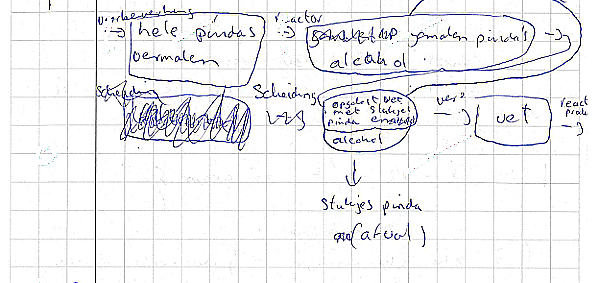 Voorbewerking
hele pindas
vermalen
reactor
gemalen pinda's
alcohol
Scheiding
Scheiding
opgelost vet
met stukjes
pinda en
alcohol
vet
react
stukjes pinda
(afval)